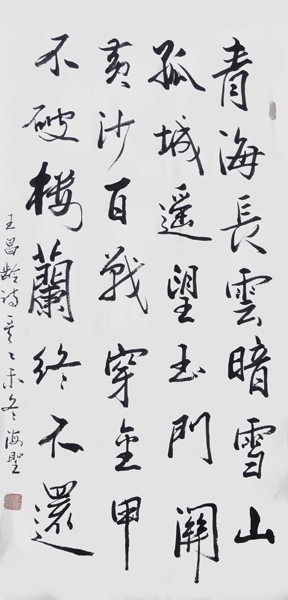 青海長雲暗雪山
孤城遙望玉門關
黃沙百戰穿金甲
不破樓蘭終不還
王昌齡詩乙未冬海聖